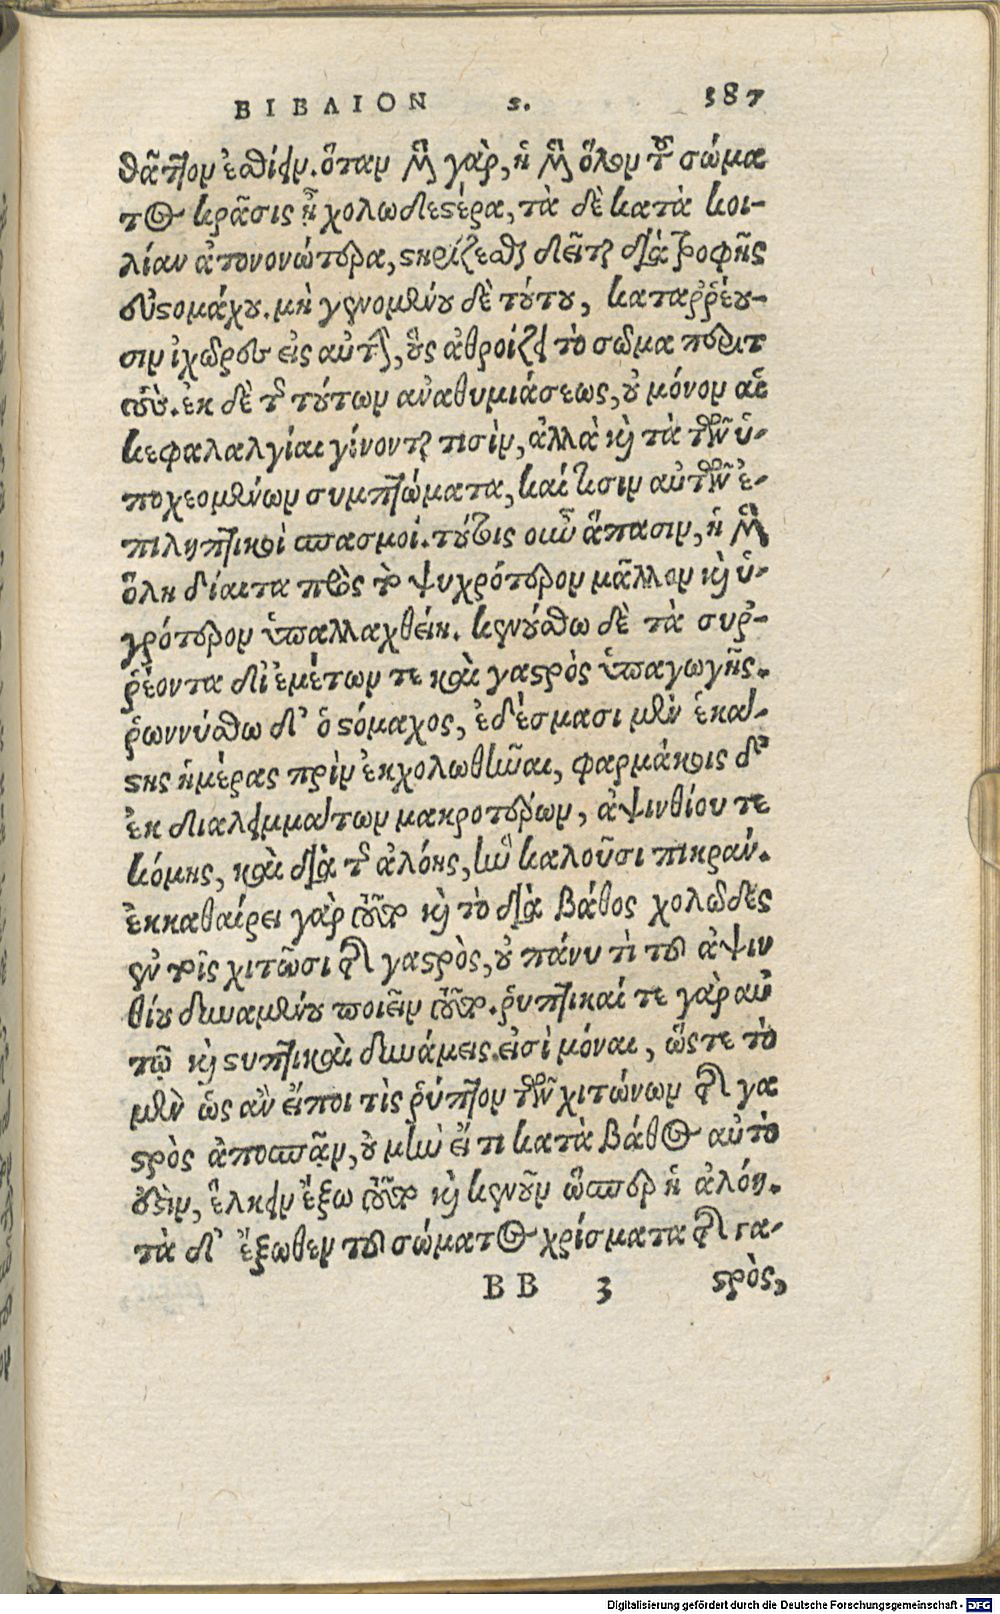 ΒΙΒΛΙΟΝ ϛ. 387
θᾶττον ἐσθίειν. ὅταν μὲν γὰρ, ἡ μὲν ὅλου τοῦ σώμα
τος κρᾶσις ᾖ χολωδεστέρα, τὰ δὲ κατὰ κοι-
λίαν ἀτονονώτερα, στηρίζεσθαι δεῖται διὰ τροφῆς
τοῦ στομάχου. μὴ γινομένου δὲ τούτου, καταῤῥέου-
σιν ἰχῶρες εἰς αὐτὴν, οὓς ἀθροίζει τὸ σῶμα περιτ
τούς. ἐκ δὲ τῆς τούτων ἀναθυμιάσεως, οὐ μόνον αἱ
κεφαλαλγίαι γίνονται τισὶν, ἀλλὰ καὶ τὰ τῶν ὑ-
ποχεομένων συμπτώματα, καί τισιν αὐτῶν ἐ-
πιληπτικοὶ σπασμοί. τούτοις οὖν ἅπασιν, ἡ μὲν
ὅλη δίαιτα πρὸς τὸ ψυχρότερον μᾶλλον καὶ ὑ-
γρότερον ὑπαλλαχθείη. κενούσθω δὲ τὰ συῤ-
ῥέοντα δι' ἐμέτων τε καὶ γαστρὸς ὑπαγωγῆς.
ῥωννύσθω δ' ὁ στόμαχος, ἐδέσμασι μὲν ἑκά-
στης ἡμέρας πρὶν ἐκχολωθῆναι, φαρμάκοις δ'
ἐκ διαλειμμάτων μακροτέρων, ἀψινθίου τε
κόμης, καὶ διὰ τῆς ἀλόης, ἣν καλοῦσι πικράν.
ἐκκαθαίρει γὰρ αὕτη καὶ τὸ διὰ βάθος χολῶδες
ἐν τοῖς χιτῶσι τῆς γαστρὸς, οὐ πάνυ τι τοῦ ἀψιν
θίου δυναμένου ποιεῖν τοῦτο. ῥυπτικαί τε γὰρ αὐ
τῷ καὶ στυπτικαὶ δυνάμεις εἰσὶ μόναι, ὥστε τὸ
μὲν ὡς ἂν εἴποι τὶς ῥύπτον τῶν χιτώνων τῆς γα
στρὸς ἀποσπᾷν, οὐ μὴν εἴ τι κατὰ βάθος αὐτὸ
οὐσὶν, ἕλκειν ἔξω τοῦτο καὶ κενοῦν ὥσπερ ἡ ἀλόη.
τὰ δ' ἔξωθεν τοῦ σώματος χρίσματα τῆς γα-
ΒΒ 3 στρὸς,
Digitalisierung gefördert durch die Deutsche Forschungsgemeinschaft - DFG